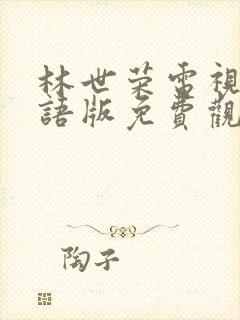 林世荣電視
語版免費觀
陶子